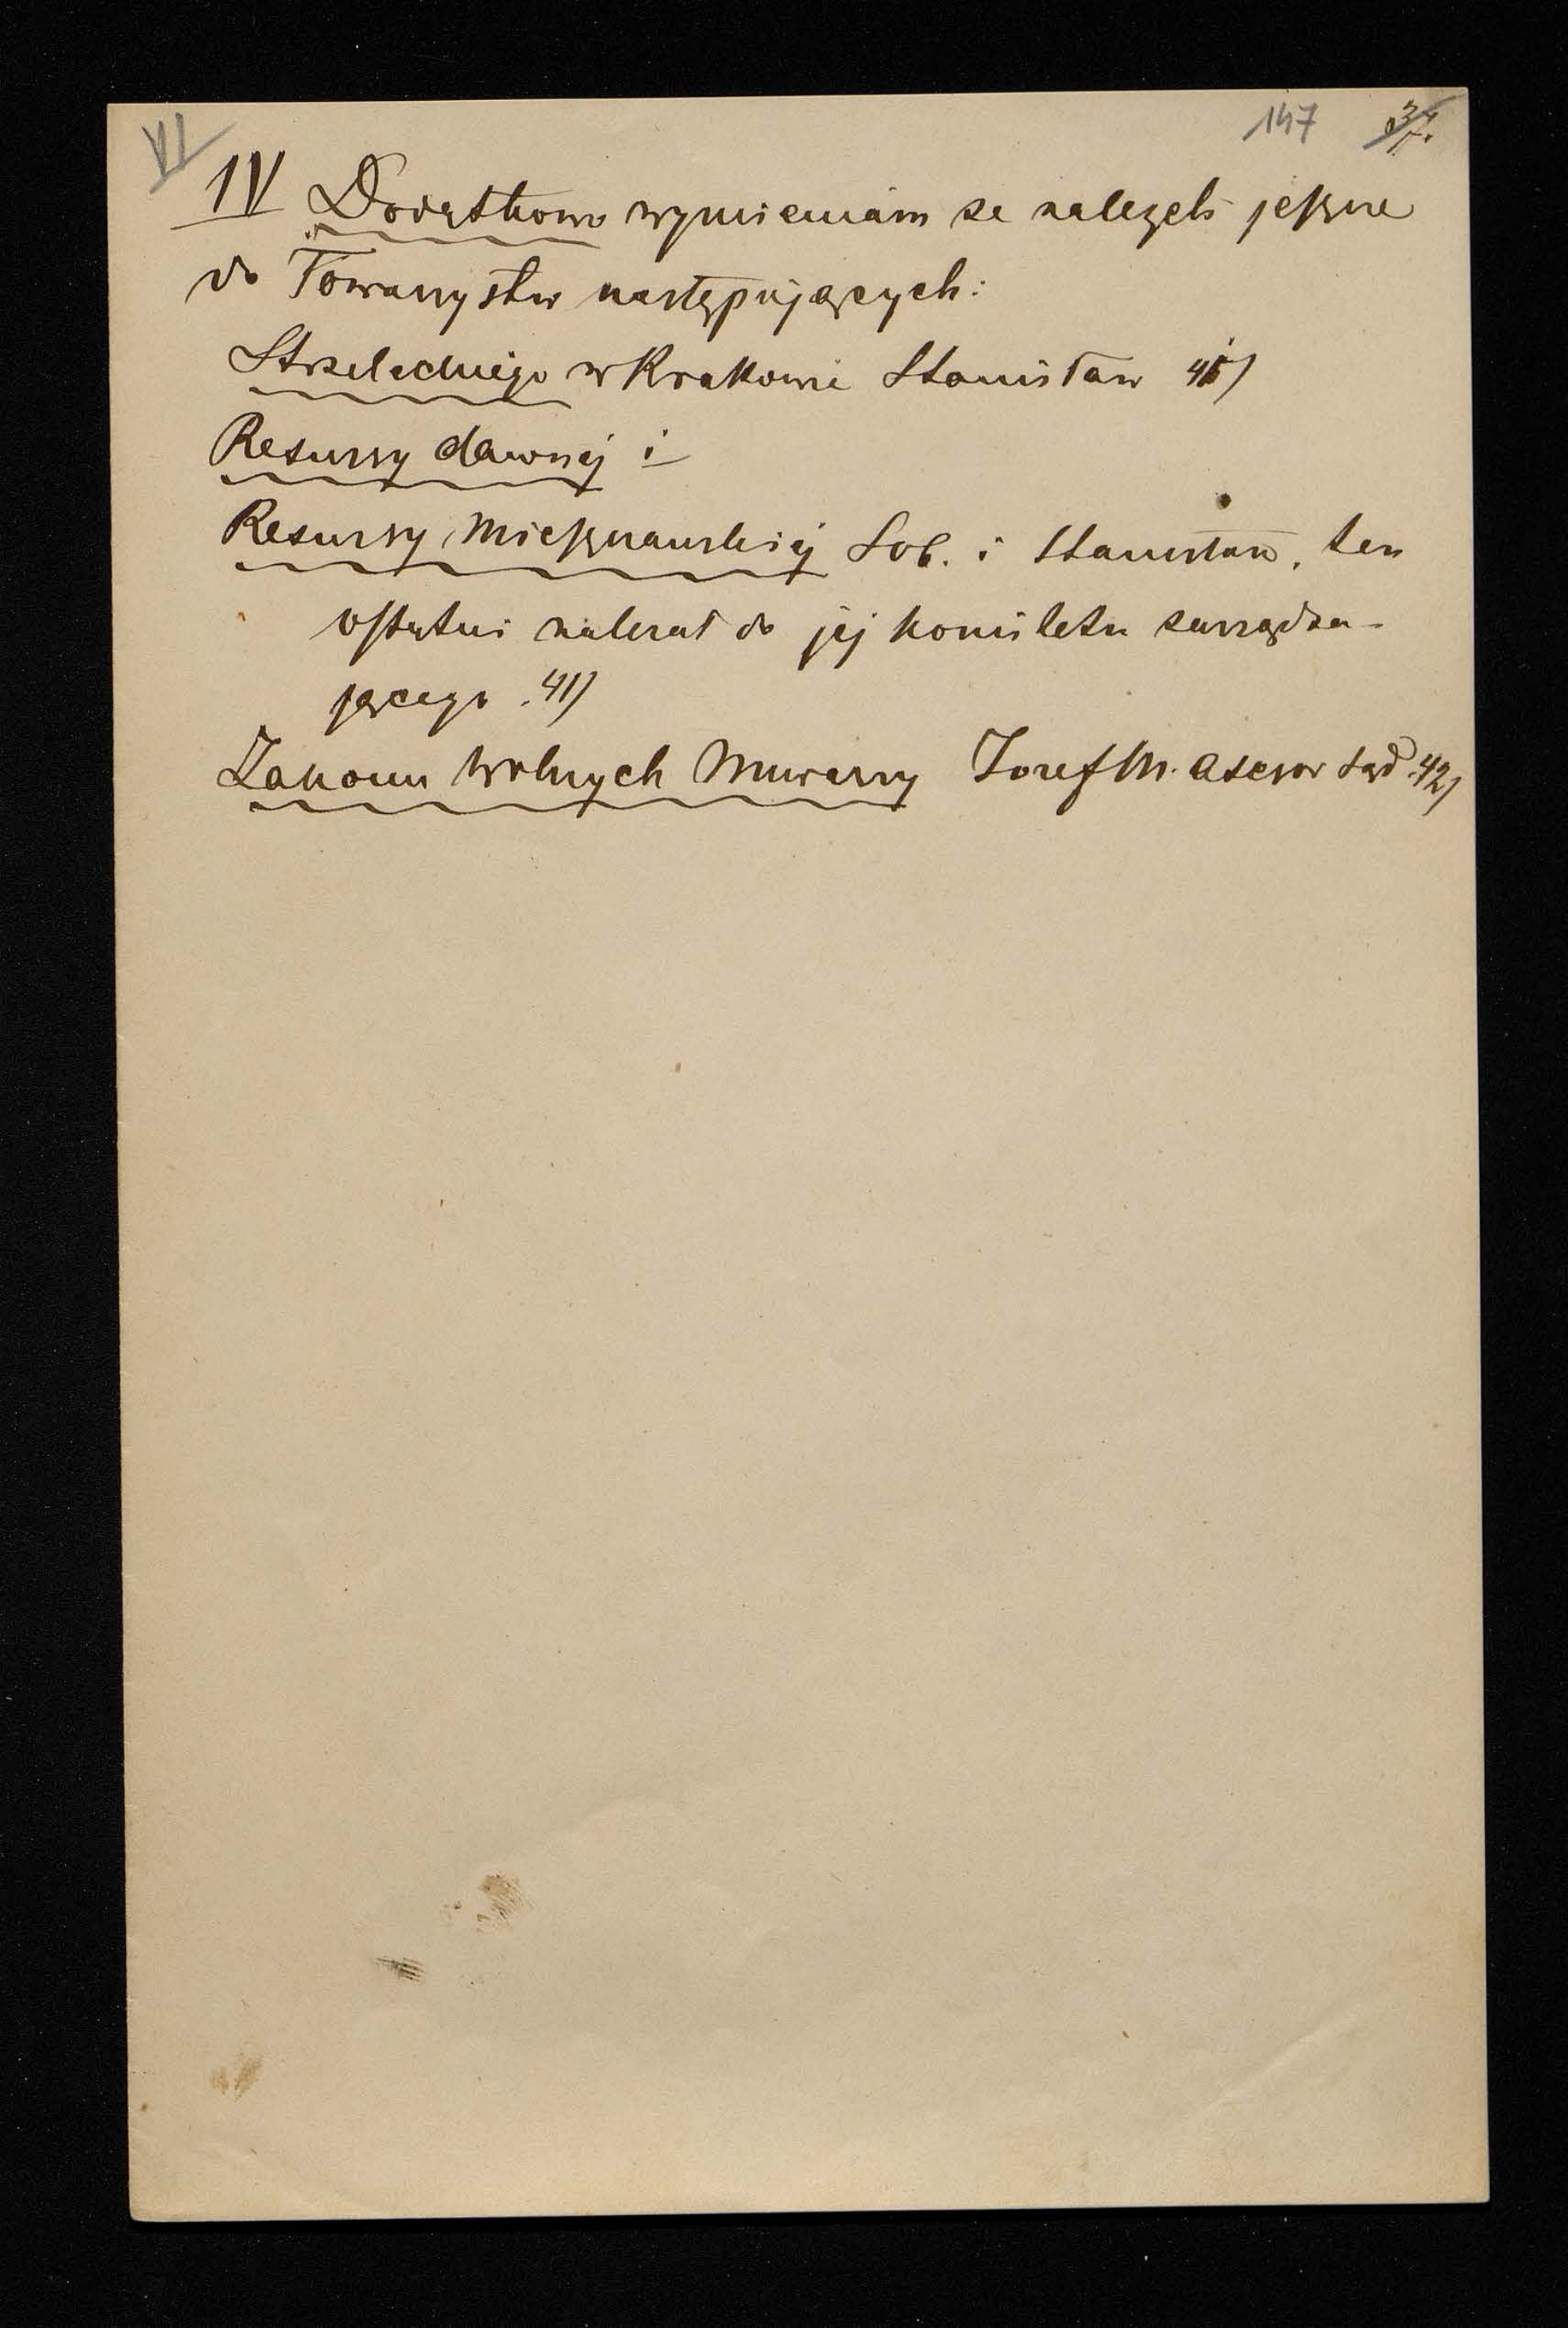 VI 147 37.
IV Dodatkowo wymieniam że należeli jeszcze
do Towarzystw następujących:
Strzeleckiego w Krakowie Stanisław
Resursy dawnéj i
Resursy Mieszczańskiéj Sob. i Stanisław, ten
ostatni należał do jéj komitetu zarządza-
jącego. 41)
Zakonu Wolnych Mularzy Józef M. Asesor Sąd. 42)